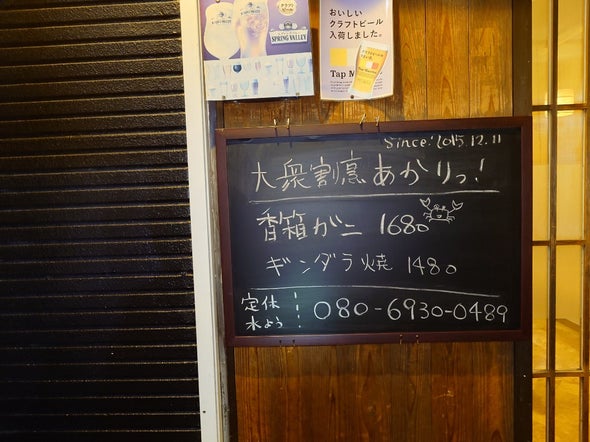 SPRING VALLEY
おいしい
クラフトビール
入荷しました。
Tap M
Since. 2015.12.11
大衆割烹あかりっ!
香箱がニ 1680
ギンダラ焼 1480
定休
水よう
080-6930-0489